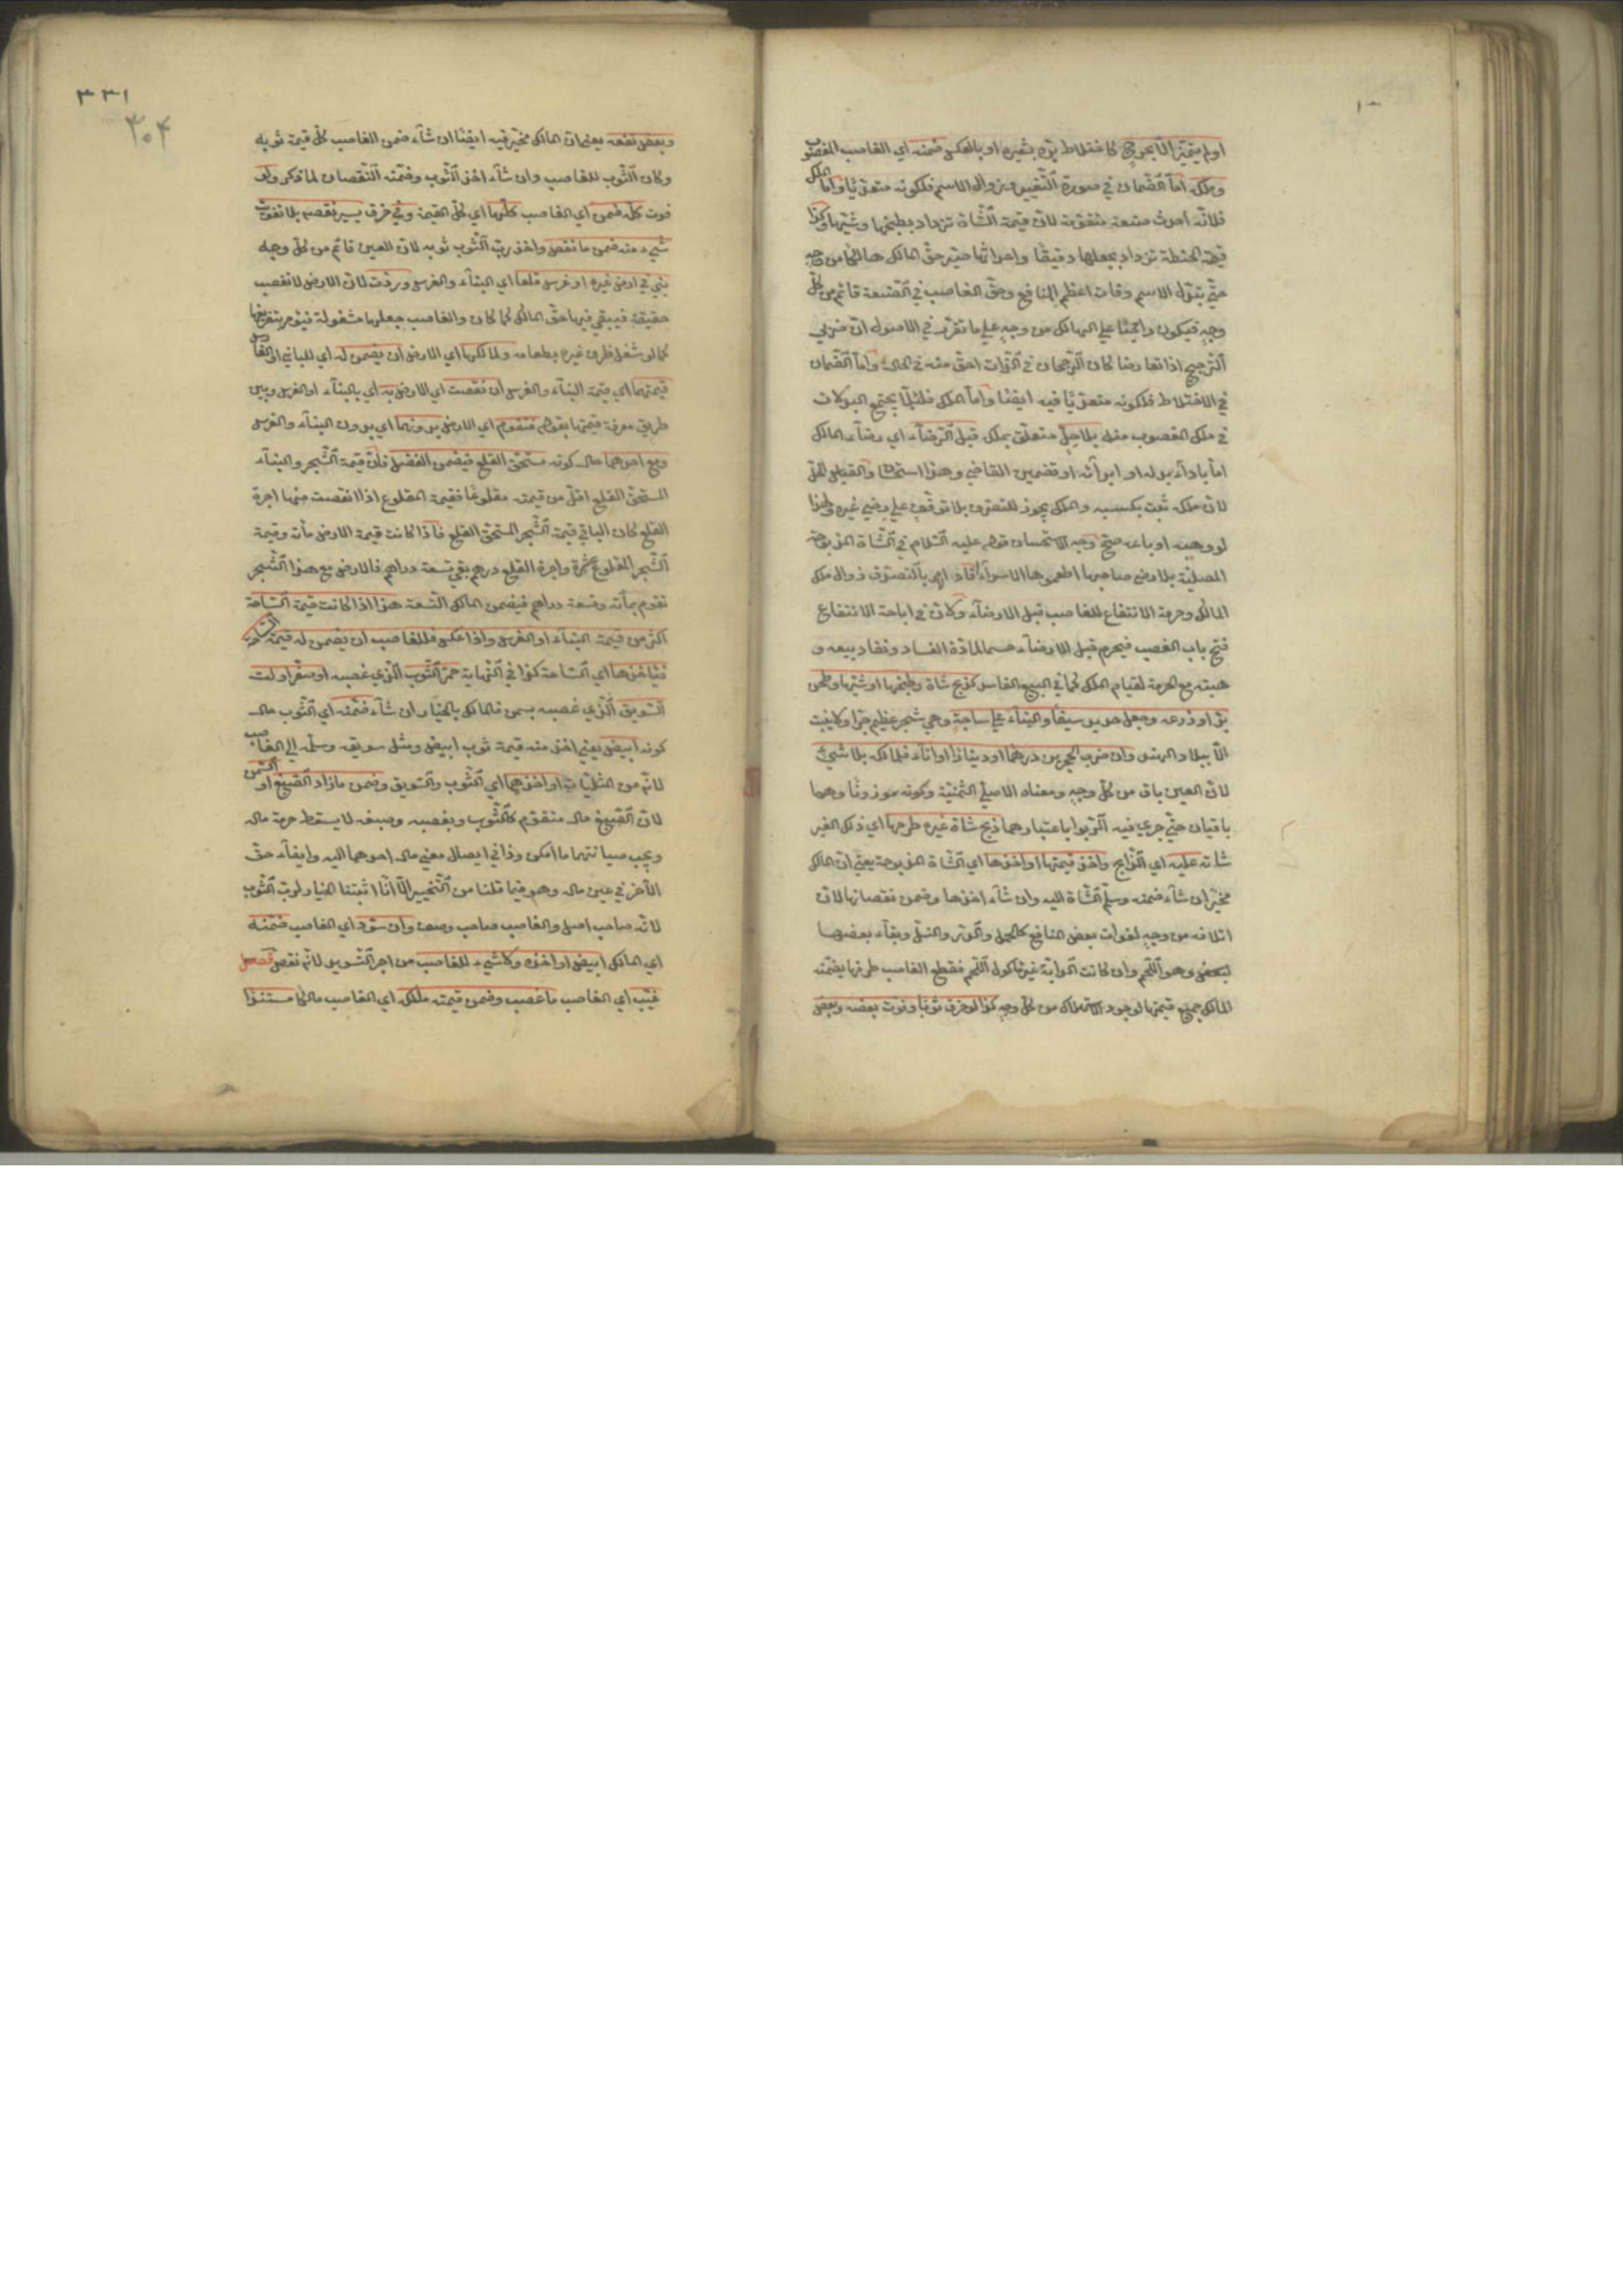 اولم يتميّز الّا بحرج كاختلاط برّه بشعيره او بالعكس ضمنه اي الغاصب المغصوب
وملكه امّا الضّمان في صورة التّغيير وزوال الاسم فلكونه متعدّيا وامّا الملك
فلانّه احدث صنعة متقوّمة لانّ قيمة الشّاة تزداد بطبخها وشيّها وكذا
قيمة الحنطة تزداد بجعلها دقيقا واحداثها صيّر حقّ المالك هالكا من وجه
حتّي يتبدّل الاسم وفات اعظم المنافع وحقّ الغاصب في الصّنعة قائم من كلّ
وجه فيكون راجحا علي الهالك من وجه علي ما تقرّر في الاصول انّ ضربي
التّرجيح اذا تعارضا كان الرّجحان في الذّات احقّ منه في الحال وامّا الضّمان
في الاختلاط فلكونه متعدّيا فيه ايضا وامّا الملك فلئلّا يجتمع البدلان
في ملك المغصوب منه بلا حلّ متعلّق بملكه قبل الرّضاء اي رضاء المالك
امّا باداء بدله او ابرائه او تضمين القاضي وهذا استحسان والقياس الحلّ
لانّ ملكه ثبت بكسبه والملك يجوز للتصرّف بلا توقّف علي رضي غيره ولهذا
لو وهبه او باعه صحّ وجه الاستحسان قوله عليه السّلام في الشّاة المذبوحة
المصليّة بلا رضي صاحبها اطعموها الاسراء افاد الامر بالتصدّق زوال ملك
المالك وحرمة الانتفاع للغاصب قبل الارضاء ولانّ في اباحة الانتفاع
فتح باب الغصب فيحرم قبل الارضاء حسما لمادّة الفساد ونفاذ بيعه و
هبته مع الحرمة لقيام الملك كما في البيع الفاسد كذبح شاة وطبخها او شيّها وطحن
برّ او زرعه وجعل حديد سيفا والبناء علي ساجة وهي شجر عظيم جدّا ولا ينبت
الّا ببلاد الهند وان ضرب الحجرين درهما او دينارا او اناء فلمالكه بلا شيئ
لانّ العين باق من كلّ وجه ومعناه الاصليّ الثّمنيّة وكونه موزونا وهما
باقيان حتّي جري فيه الرّبوا باعتبارهما ذبح شاة غيره طرحها اي ذلك الغير
شاته عليه اي الذّابح واخذ قيمتها او اخذها اي الشّاة المذبوحة يعني انّ المالك
مخيّر ان شاء ضمنه وسلّم الشّاة اليه وان شاء اخذها وضمن نقصانها لانّ
اتلافه من وجه لفوات بعض المنافع كالحمل والدّر والنّسل وبقاء بعضها
لبعض وهو اللّحم وان كانت الدابّة غير مأكول اللّحم فقطع الغاصب طرفها يضمنه
المالك جميع قيمتها لوجود الاستهلاك من كلّ وجه كذا لو خرق ثوبا وفوّت بعضه وبعض
٣٣١
٣٠۴
وبعض نفعه يعني انّ المالك مخيّر فيه ايضا ان شاء ضمن الغاصب كلّ قيمة ثوبه
وكان الثّوب للغاصب وان شاء اخذ الثّوب وضمّنه النّقصان لما ذكر ولو
فوت كلّه ضمن اي الغاصب كلّها اي كلّ القيمة وفي خرق يسير نقصه بلا تفويت
شيء منه ضمن ما نقص واخذ ربّ الثّوب ثوبه لانّ العين قائم من كلّ وجه
بني في ارض غيره او غرس قلعا اي البناء والغرس وردّت لانّ الارض لا تغصب
حقيقة فيبقي فيها حقّ المالك كما كان والغاصب جعلها مشغولة فيؤمر بتفريغها
كما لو شغل ظرف غيره بطعامه ولمالكها اي الارض ان يضمن له اي للباني او الغارس
قيمتهما اي قيمة البناء والغرس ان نقصت اي الارض به اي بالبناء او الغرس وبيّن
طريق معرفة قيمتها بقوله فتقوّم اي الارض بدونهما اي بدون البناء والغرس
ومع احدهما حال كونه مستحقّ القلع فيضمن الفضل فانّ قيمة الشّجر والبناء
المستحقّ القلع اقلّ من قيمته مقلوعا فقيمة المقلوع اذا نقصت منها اجرة
القلع كان الباقي قيمة الشّجر المستحقّ القلع فاذا كانت قيمة الارض مأة وقيمة
الشّجر المقلوع عشرة واجرة القلع درهم بقي تسعة دراهم فالارض مع هذا الشّجر
تقوم بمأة وتسعة دراهم فيضمن المالك التّسعة هذا اذا كانت قيمة السّاحة
اكثر من قيمة البناء او الغرس واذا عكس فللغاصب ان يضمن له قيمة السّاحة
فيأخذها اي السّاحة كذا في النّهاية حمّر الثّوب الّذي غصبه او صفّر او لتّ
السّويق الّذي غصبه بسمن فالمالك بالخيار ان شاء ضمّنه اي الثّوب حال
كونه ابيض يعني اخذ منه قيمة ثوب ابيض ومثل سويقه وسلّمه الي الغاصب
لانّه من المثليّات او اخذهما اي الثّوب والسّويق وضمن ما زاد الصّبغ او السّمن
لانّ الصّبغ مال متقوّم كالثّوب وبغصبه وصبغه لا يسقط حرمة ماله
ويجب صيانتهما ما امكن وذا في ايصال معني مال احدهما اليه وابقاء حقّ
الآخر في عين ماله وهو فيما قلنا من التّخيير الّا انّا اثبتنا الخيار لربّ الثّوب
لانّه صاحب اصل والغاصب صاحب وصف وان سوّد اي الغاصب ضمّنه
اي المالك ابيض او اخذه ولا شيء للغاصب من اجر التّسويد لانّه نقص فصل
غيّب اي الغاصب ما غصب وضمن قيمته ملكه اي الغاصب مالكا مستندا